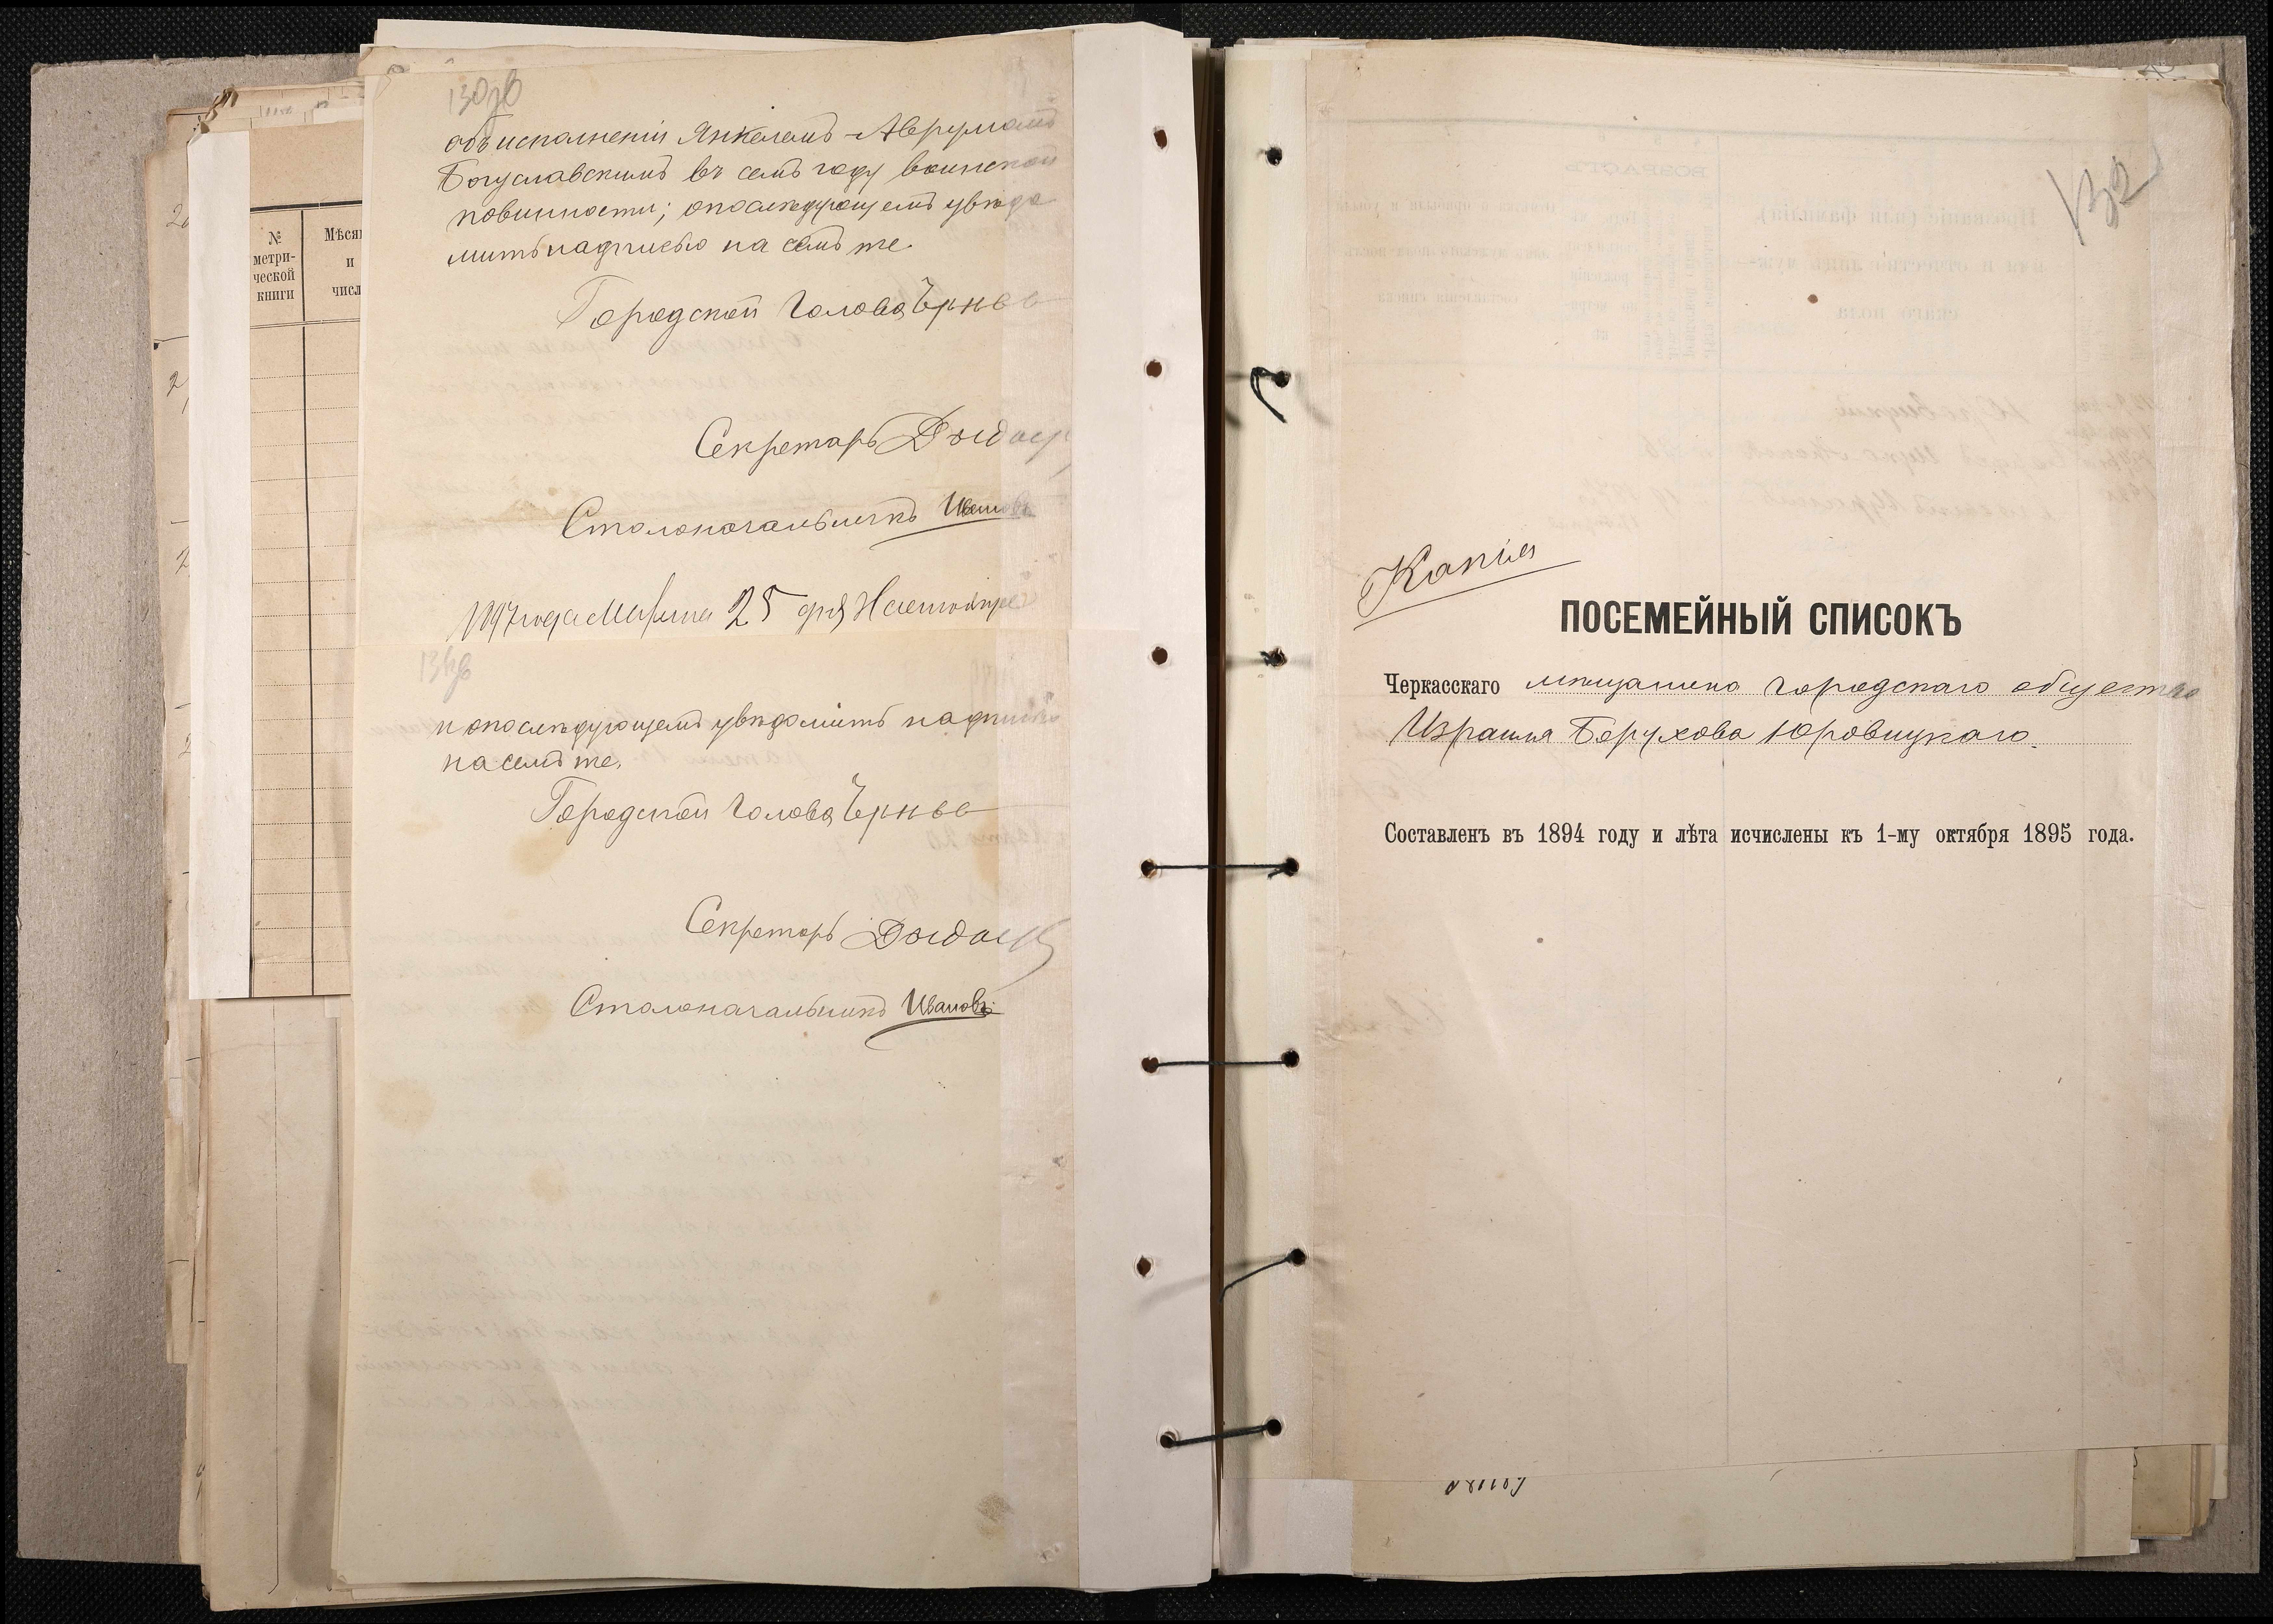 130об
объ исполненіи Янкелемъ-Аврумомъ
Богуславскимъ въ семъ году воинской
повинности; о послѣдующемъ увѣдо
мить надписью на семъ же.
Городской Голова
Секретарь
Столоначальникъ Ивановъ
25 дня
131об
и о послѣдующемъ увѣдомить надписью
на семъ же.
Городской Голова
Секретарь
Столоначальникъ Ивановъ
№ метри-
ческой
книги
Мѣся
и
числ
132
Копія
ПОСЕМЕЙНЫЙ СПИСОКЪ
Черкасскаго мѣщанина городскаго общества
Израиля Борухова Юровицкаго.
Составленъ въ 1894 году и лѣта исчислены къ 1-му октября 1895 года.